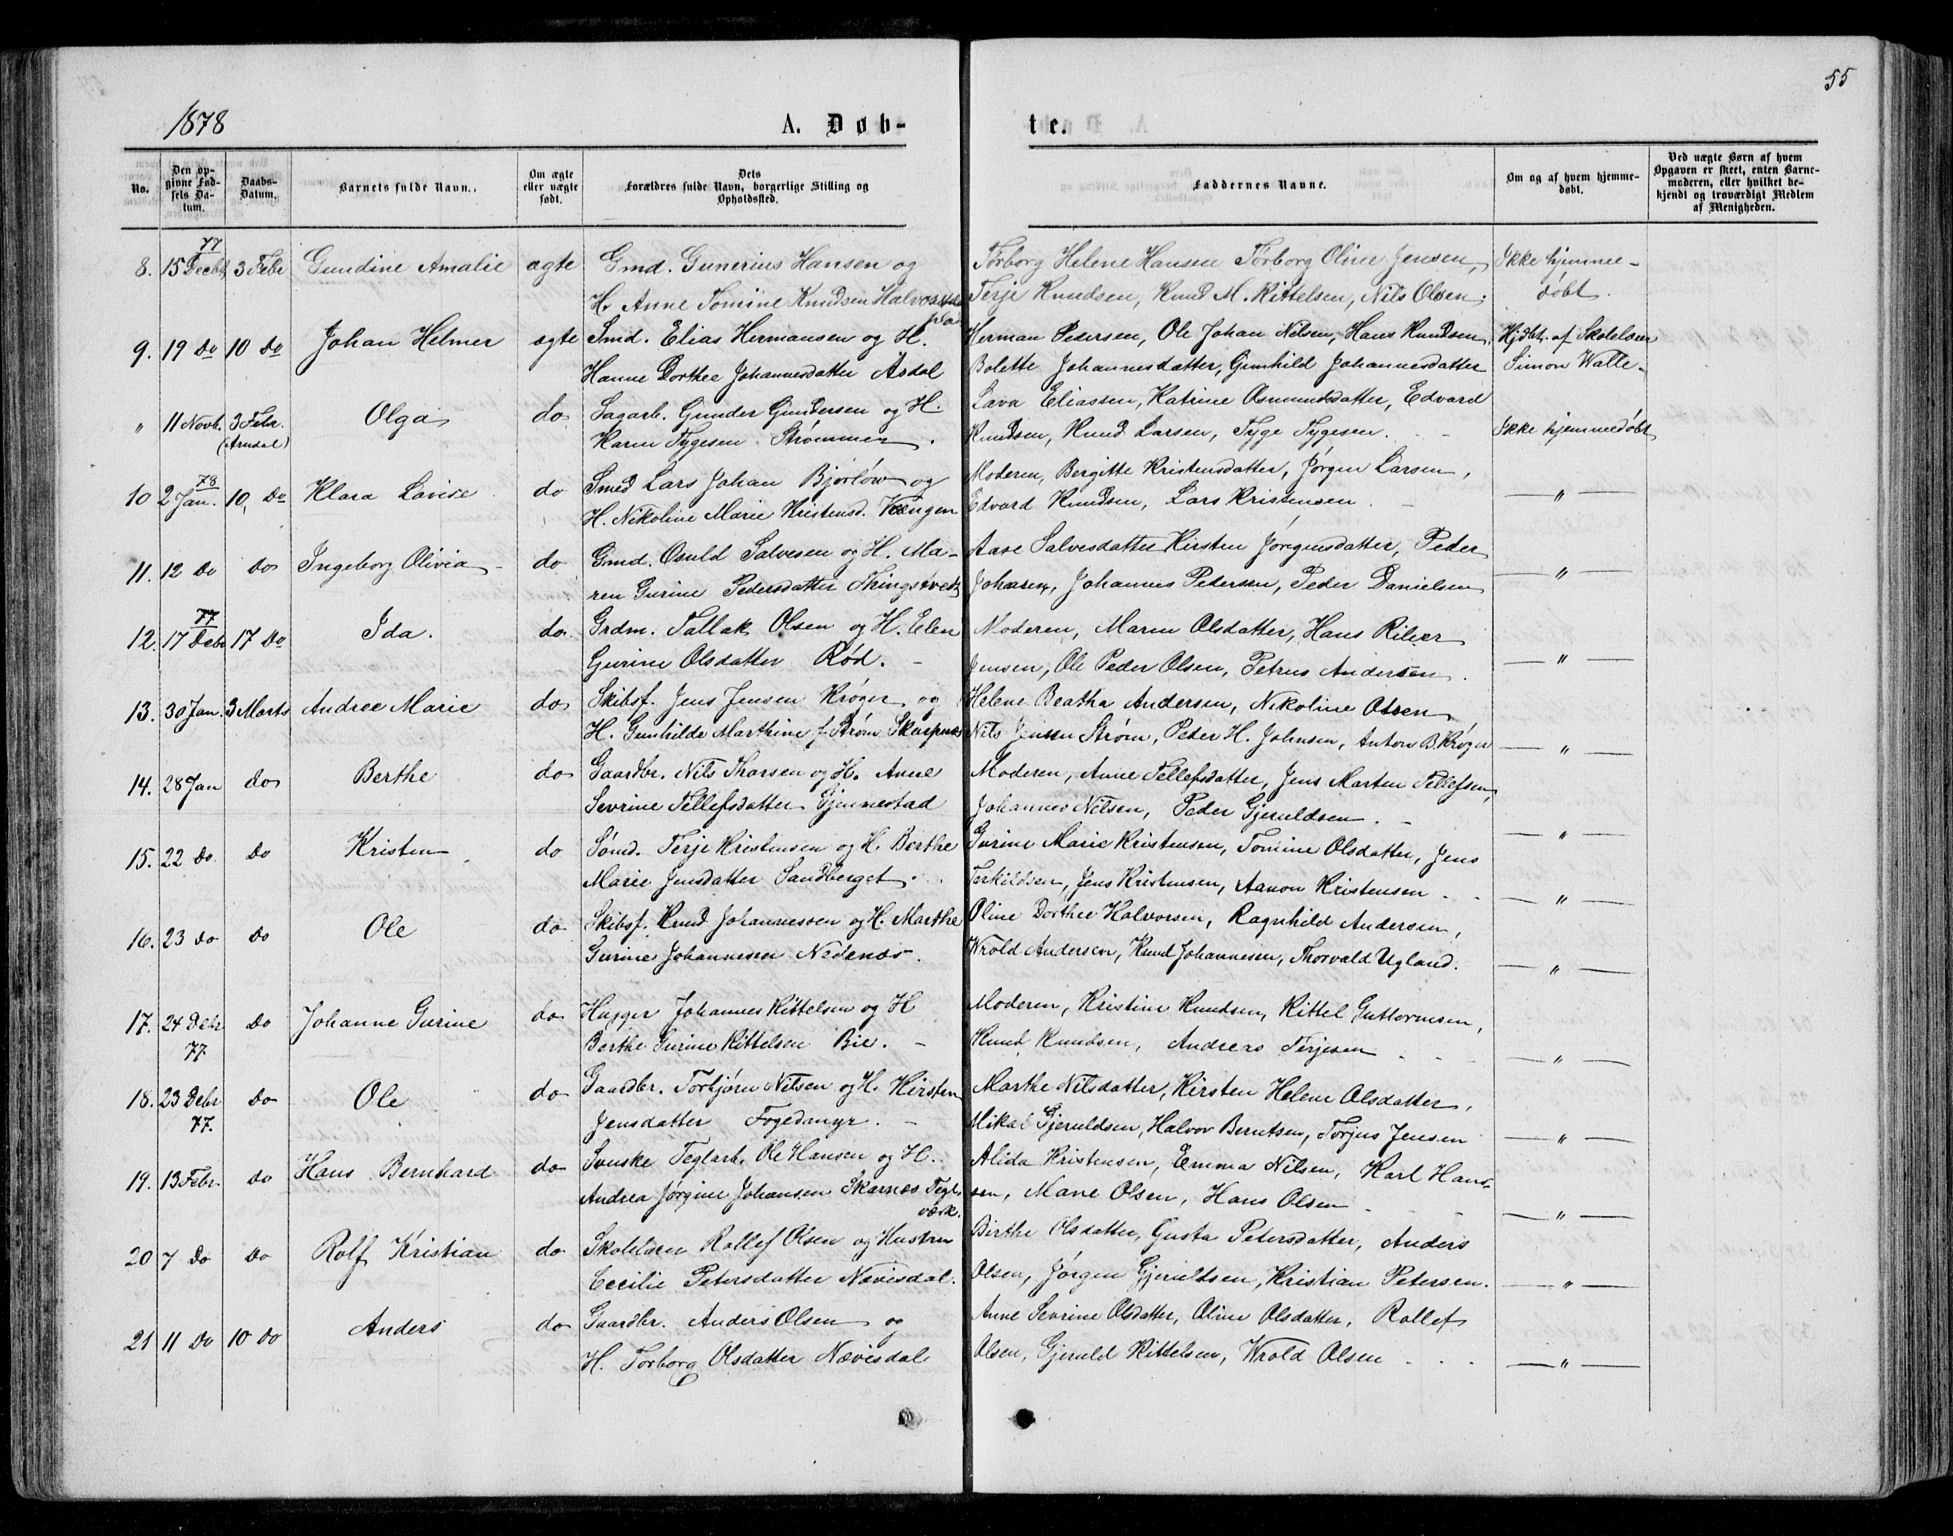 55
1878
A. Døb-
te.
No.
Den op-
givne Fød-
sels Da-
tum.
Daabs-
Datum.
Barnets fulde Navn.
Om ægte
eller uægte
født.
Dets
Forældres fulde Navn, borgerlige Stilling og
Opholdssted.
Faddernes Navne.
Om og af hvem hjemme-
døbt.
Ved uægte Børn af hvem
Opgaven er skeet, enten Barne-
moderen, eller hvilket be-
kjendt og troværdigt Medlem
af Menigheden.
77
8. 15 Decbr 3 Febr Gundine Amalie ægte Gmd. Gunerius Hansen og Torborg Helene Hansen Torborg Oline Jensen, Ikke hjemme-
H. Anne Tomine Knudsen Terje Knudsen, Knud M. Kittelsen, Nils Olsen. døbt.
9. 19 Do 10 Do Johan Helmer ægte Smd. Elias Hermansen og H. Herman Pedersen, Ole Johan Nilsen, Hans Knudsen, Hjdbt. af Skolelærer
Hanne Dorthee Johannesdatter Asdal Bolette Johannesdatter, Gunhild Johannesdatter Simon Walle.
" 11 Novb. 3 Febr. Olga do Sagarb. Gunder Gundersen og H. Lava Eliassen, Katrine Osmundsdatter, Edvard
(Arndal) Karen Tygesen Strømmen. Knudsen, Knud Larsen, Tyge Tygesen. Ikke hjemmedøbt
78
10 2 Jan. 10, Do Klara Lovise do Smed Lars Johan Bjorløw og Moderen, Bergitte Kristensdatter, Jørgen Larsen,
H. Nikoline Marie Kristensd. Vængen Edvard Knudsen, Lars Kristensen. — " —
11. 12 Do Do Ingeborg Olivia do Gmd. Osuld Salvesen og H. Ma- Aase Salvesdatter Kirsten Jørgensdatter, Peder
ren Gurine Pedersdatter Thingstvedt Johansen, Johannes Petersen, Peder Danielsen — " —
77
12. 17 Debr 17 Do Ida. do. Grdm. Tallak Olsen og H. Elen Moderen, Maren Olsdatter, Hans Riber
Gurine Olsdatter Rød. Jensen, Ole Peder Olsen, Petrus Andersen. — " —
13. 30 Jan. 3 Marts Andree Marie do Skibsf. Jens Jensen Krøger og Helene Beatha Andersen, Nikoline Olsen,
H. Gunhilde Marthine f. Strøm Skarpnes Nils Jensen Strøm, Peder H. Johnsen, Anton B. Krøger — " —
14. 28 Jan Do Berthe do Gaardbr. Nils Thorsen og H. Anne Moderen, Anne Tellefsdatter, Jens Marten Tellefsen,
Sevrine Tellefsdatter Gjennestad Johannes Nilsen, Peder Gjeruldsen. — " —
15. 22 Do Do Kristen do Sømd. Terje Kristensen og H. Berthe Gurine Marie Kristensen, Tomine Olsdatter, Jens
Marie Jensdatter Sandberget. Terkildsen, Jens Kristensen, Aanon Kristensen. — " —
16. 23 Do Do Ole do Skibsf. Knud Johannessen og H. Marthe Oline Dorthee Halvorsen, Ragnhild Andersen,
Gurine Johannessen Nedenæs. Wrold Andersen, Knud Johannessen, Thorvald Ugland. — " —
17. 24 Debr Do Johanne Gurine do Hugger Johannes Kittelsen og H Moderen, Kristine Knudsen, Kittel Guttormsen,
77 Berthe Gurine Kittelsen Bie. Knud Knudsen, Andreas Terjesen — " —
18. 23 Debr Do Ole do Gaardbr. Torbjørn Nilsen og H. Kirsten Marthe Nilsdatter, Kirsten Helene Olsdatter,
77. Jensdatter Fogedmyr. Mikal Gjeruldsen, Halvor Berntsen, Torjus Jensen — " —
19. 13 Febr. Do Hans Bernhard do Svenske Teglarb. Ole Hansen og H. Alida Kristensen, Emma Nilsen, Karl Han-
Andrea Jørgine Johansen Skarnæs Tegl- sen, Marie Olsen, Hans Olsen — " —
værk.
20 7 Do Do Rolf Kristian do Skolelærer Rollef Olsen og Hustru Birthe Olsdatter, Gusta Petersdatter, Anders
Cecilie Petersdatter Nævisdal. Olsen, Jørgen Gjeruldsen, Kristian Petersen. — " —
21 11 Do 10 Do Anders do Gaardbr. Anders Olsen og Anne Sevrine Olsdatter, Oline Olsdatter, Rollef
H. Torborg Olsdatter Nævisdal Olsen, Gjeruld Kittelsen, Wrold Olsen — " —